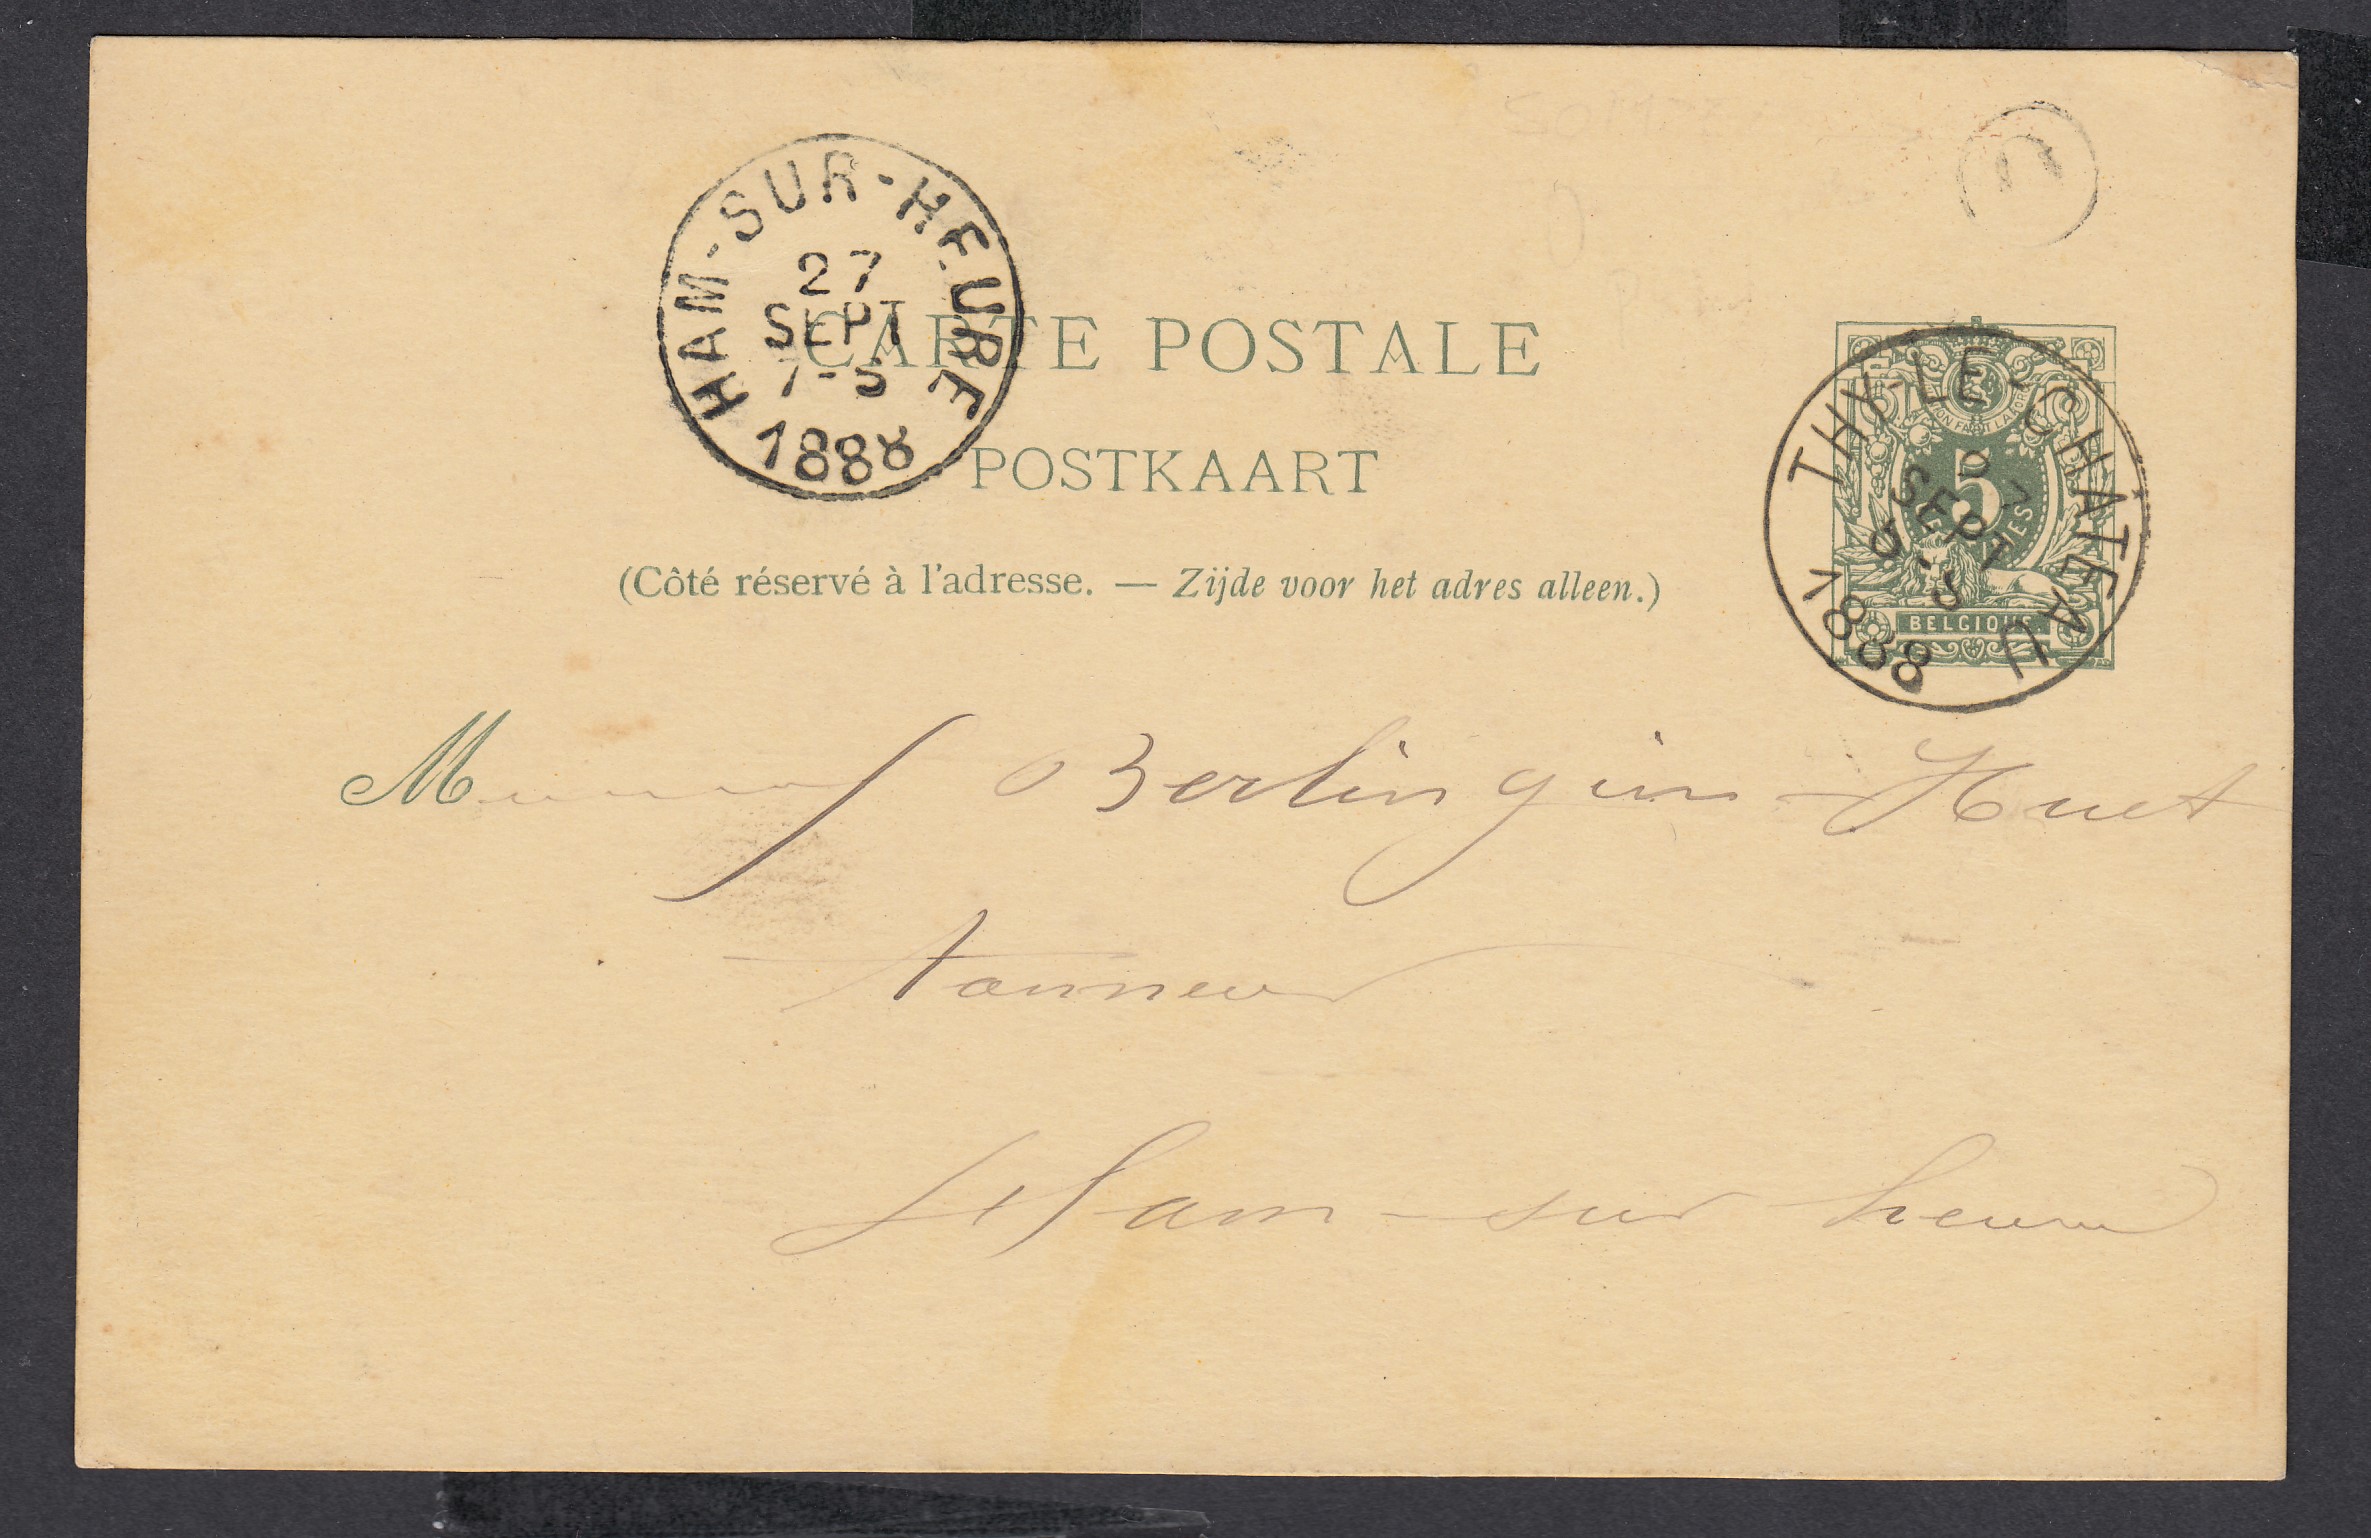 HAM-SUR-HEURE
27
SEPT
7-S
1888
CARTE POSTALE
POSTKAART
(Côté réservé à l'adresse. — Zijde voor het adres alleen.)
THY-LE-CHATEAU
27
SEPT
1888
5
BELGIQUE.
Monsieur Berlingin-Huet
tanneur
Ham-sur heure